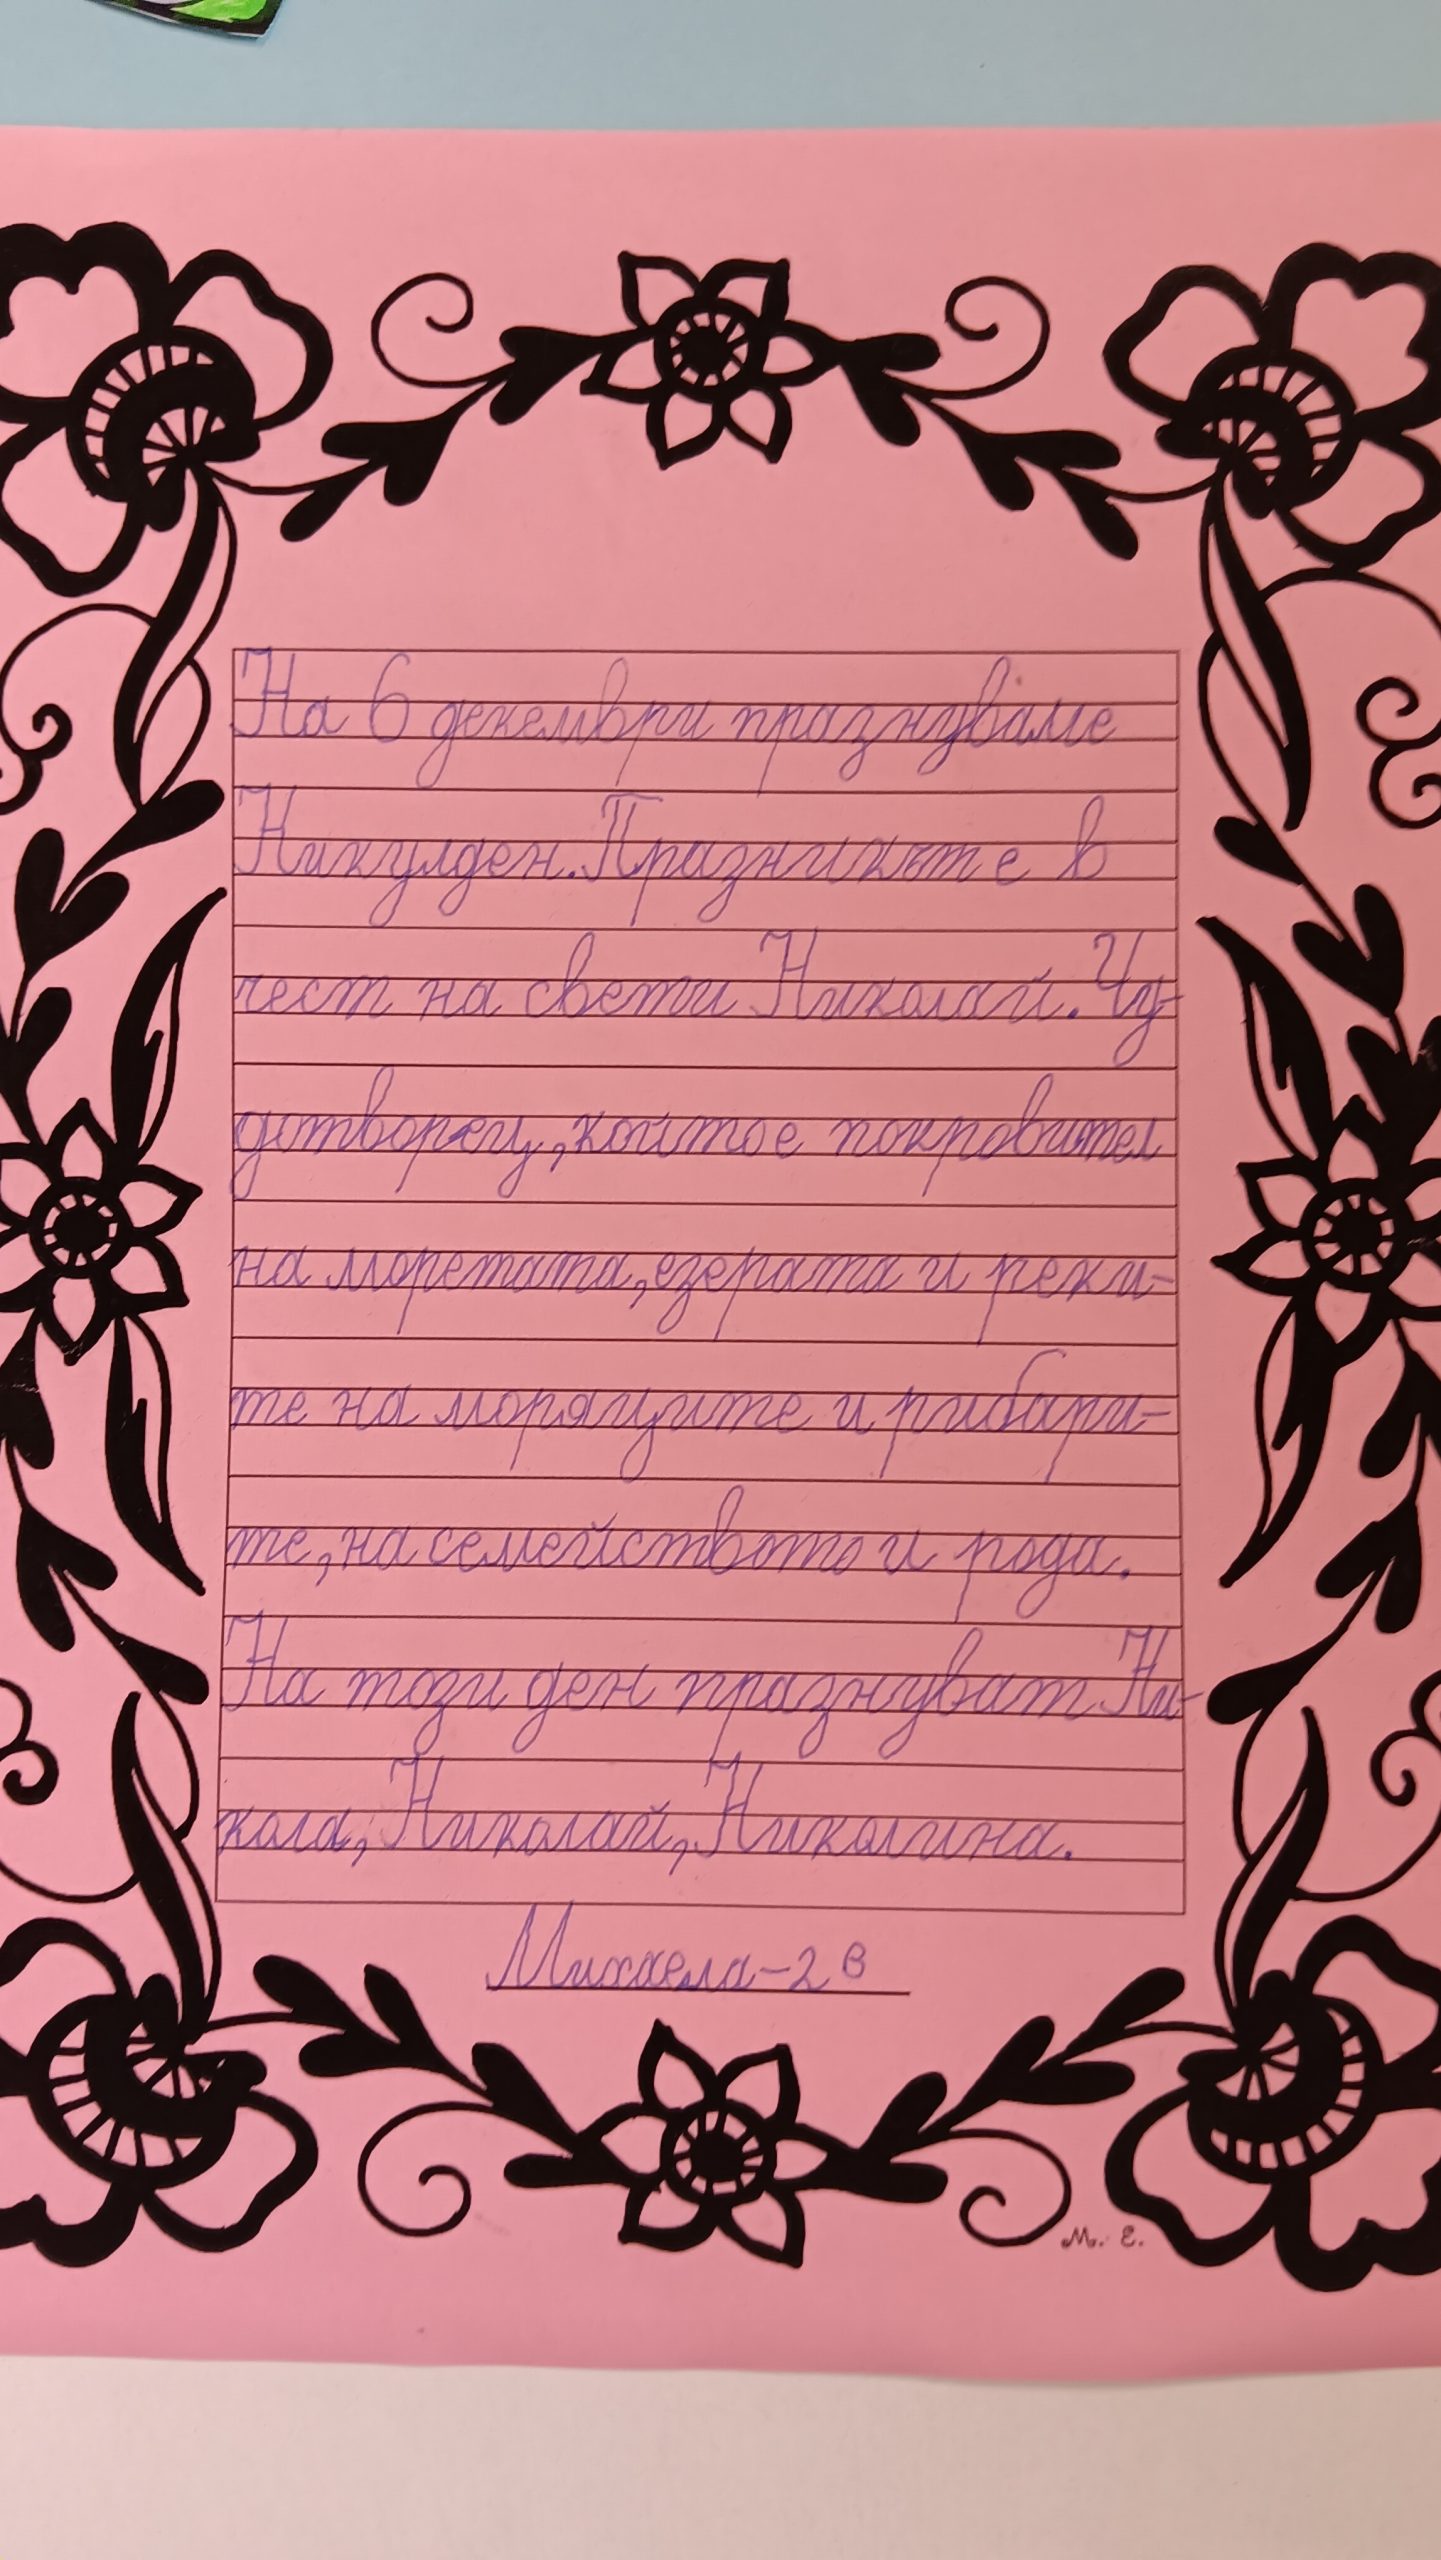 На 6 декември празнуваме
Никулден. Празникът е в
чест на свети Николай. Чу-
дотворец, който е покровител
на моретата, езерата и реки-
те на моряците и рибари-
те, на семейството и рода.
На този ден празнуват Ни-
кола, Николай, Николина.
Михаела - 2 в
М. Е.